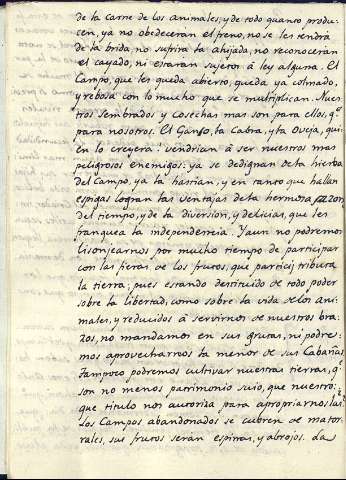 de la carne de los animales, y de todo quanto produ-
cen, ya no obedeceràn el freno, no se les tendrà
de la brida, no sufrirà la ahijada, no reconoceràn
el cayado, ni estaràn sujetos à ley alguna. El
Campo, que les queda abierto, queda ya colmado,
y rebosa con lo mucho que se multiplican. Nues-
tros Sembrados y Cosechas mas son para ellos, qe.
para nosotros. El Ganso, la Cabra, y la Oveja, qui-
en lo creyera! vendrian à ser nuestros mas
peligrosos enemigos: ya se dedignan de la hierba
del Campo, ya la hastian, y en tanto que hallan
espigas logran las ventajas de la hermosa sazon
del tiempo, y de la diversion, y delicias, que les
franquea la independencia. Y aun no podremos
lisonjearnos por mucho tiempo de participar
con las fieras de los frutos, que tributa
la tierra; pues estando destituido de todo poder
sobre la libertad, como sobre la vida de los ani-
males, y reducidos à servirnos de nuestros bra-
zos, no mandamos en sus grutas, ni podre-
mos aprovecharnos la menor de sus Cabañas
Tampoco podremos cultivar nuestras tierras, qe.
son no menos patrimonio suio, que nuestro:
que titulo nos autoriza para apropriarnoslas?
Los Campos abandonados se cubren de mator-
rales, sus frutos seràn espinas, y abrojos. La